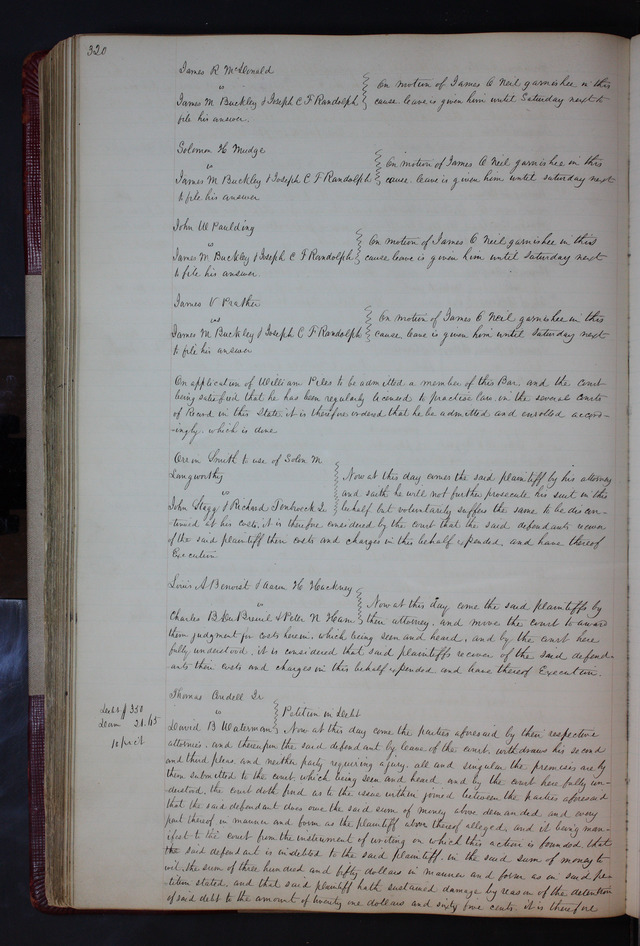 320
James R McDonald
vs
James M Buckley & Joseph C F Randolph
On motion of James C Neil garnishee in this
cause leave is given him until Saturday next to
file his answer.
Solomon H Mudge
vs
James M Buckley & Joseph C F Randolph
On motion of James C Neil garnishee in this
cause leave is given him until Saturday next
to file his answer
John W Paulding
vs
James M Buckley & Joseph C F Randolph
On motion of James C Neil garnishee in this
cause leave is given him until Saturday next
to file his answer.
James V Prather
vs
James M Buckley & Joseph C F Randolph
On motion of James C Neil garnishee in this
cause leave is given him until Saturday next
to file his answer
On application of William Piles to be admitted a member of this Bar and the court
being satisfied that he has been regularly licensed to practice law in the several Courts
of Record in this State it is therefore ordered that he be admitted and enrolled accord-
-ingly which is done
Orson Smith to use of Solon M
Langworthy
vs
John Stagg & Richard Tenbroeck Jr
Now at this day comes the said plaintiff by his attorney
and saith he will not further prosecute his suit in this
behalf but voluntarily suffers the same to be discon-
tinued at his costs, it is therefore considered by the court that the said defendants recover
of the said plaintiff their costs and charges in this behalf expended, and have thereof
Execution
Louis A Benoist & Aaron H Hackney
vs
Charles B DuBreuil & Peter N Ham
Now at this day come the said plaintiffs by
their attorney, and move the court to award
them judgment for costs herein, which being seen and heard, and by the court here
fully understood, it is considered that said plaintiffs recover of the said defend-
ants their costs and charges in this behalf expended and have thereof Execution.
Thomas Andell Jr
vs
David B Waterman
Petition in Debt
Debt $350
Dam 21.65
10 pr ct
Now at this day come the parties aforesaid by their respective
attornies, and thereupon the said defendant by leave of the court, withdraws his second
and third pleas, and neither party requiring a jury, all and singular the premises are by
them submitted to the court, which being seen and heard and by the court here fully un-
derstood, the court doth find as to the issue within joined between the parties aforesaid
that the said defendant does owe the said sum of money above demanded and every
part thereof in manner and form as the plaintiff above thereof alleged, and it being man-
ifest to the court from the instrument of writing on which this action is founded that
the said defendant is indebted to the said plaintiff in the said sum of money to
wit, the sum of three hundred and fifty dollars in manner and form as in said pe-
tition stated, and that said plaintiff hath sustained damage by reason of the detention
of said debt to the amount of twenty one dollars and sixty five cents it is therefore